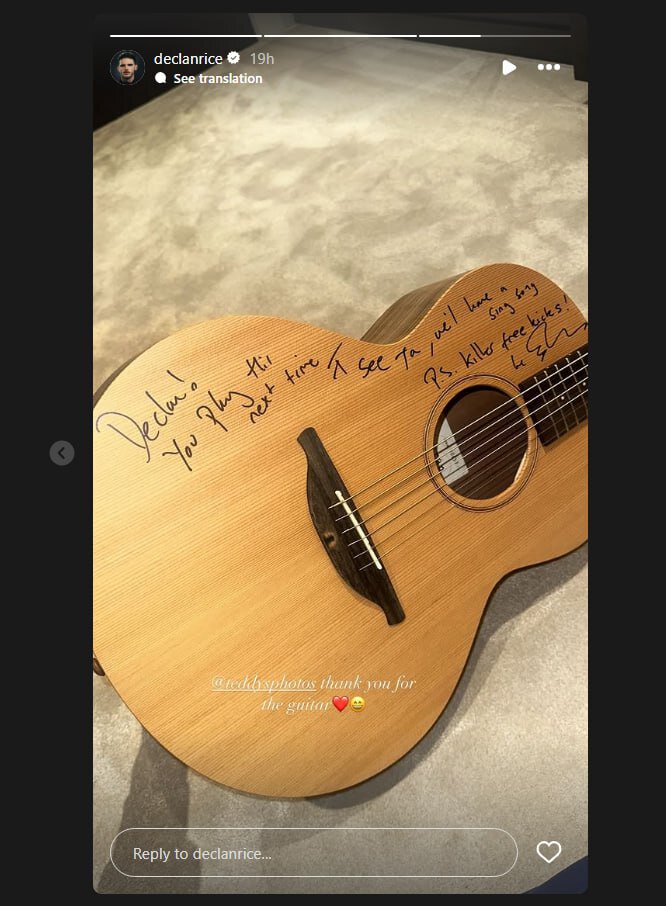 declanrice 19h
See translation
Declan!
You Play this
next time I see ya, we'll have a
sing song
P.S. killer free kicks!
@teddysphotos thank you for
the guitar❤️😄
Reply to declanrice...